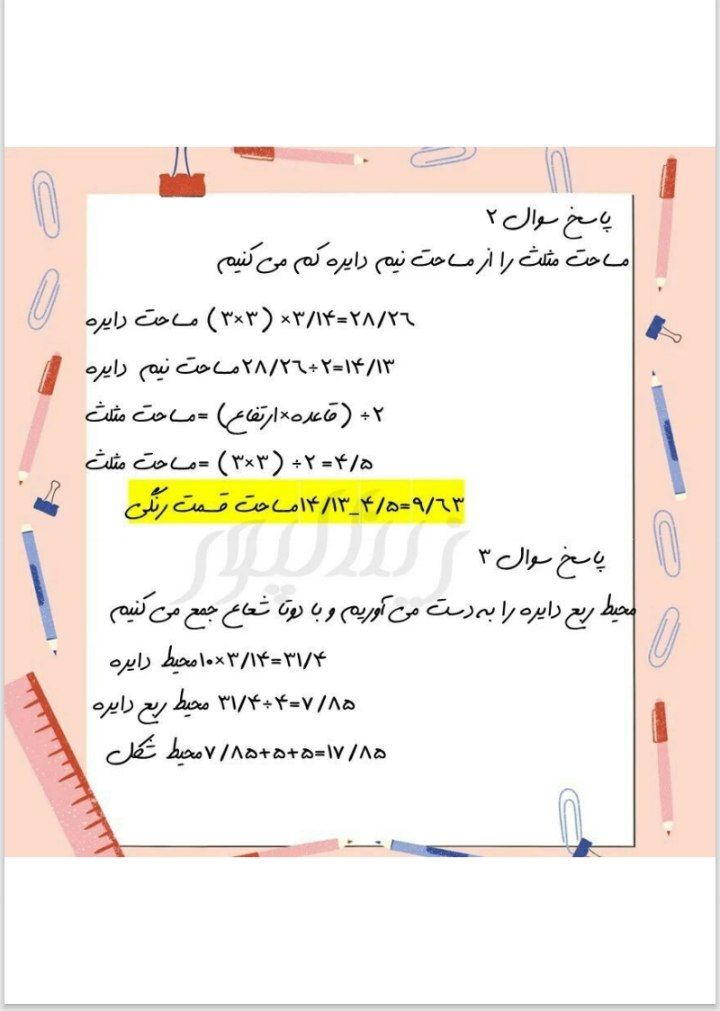 پاسخ سوال ۲
مساحت مثلث را از مساحت نیم دایره کم می کنیم
مساحت دایره (۳×۳) ×۳/۱۴=۲۸/۲۶
مساحت نیم دایره ۲۸/۲۶÷۲=۱۴/۱۳
مساحت مثلث= (قاعده×ارتفاع) ÷۲
مساحت مثلث= (۳×۳) ÷۲=۴/۵
مساحت قسمت رنگی ۱۴/۱۳_۴/۵=۹/۶۳
پاسخ سوال ۳
محیط ربع دایره را به دست می آوریم و با دوتا شعاع جمع می کنیم
محیط دایره ۱۰×۳/۱۴=۳۱/۴
محیط ربع دایره ۳۱/۴÷۴=۷/۸۵
محیط شکل ۷/۸۵+۵+۵=۱۷/۸۵